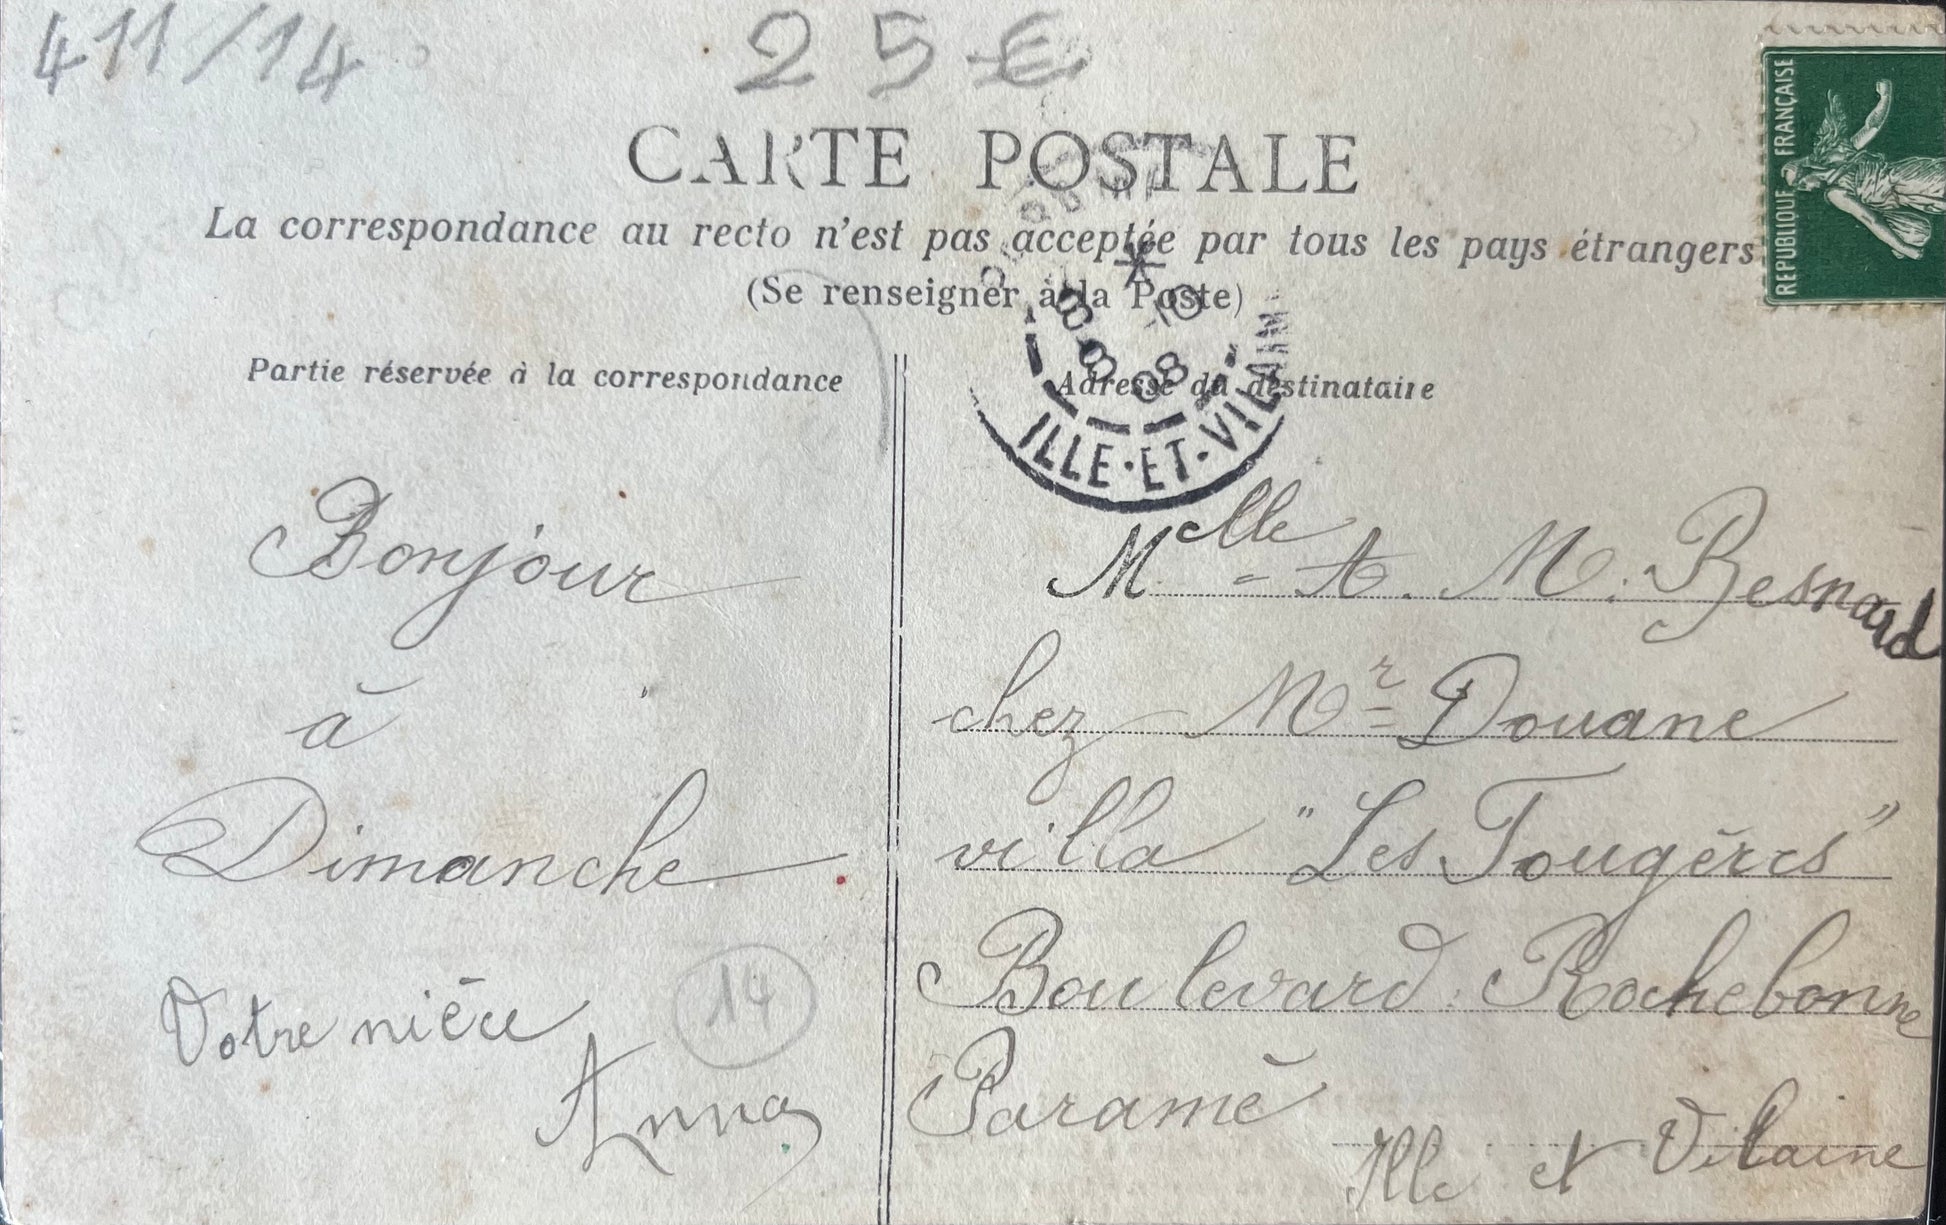 411/14
25€
CARTE POSTALE
La correspondance au recto n'est pas acceptée par tous les pays étrangers
(Se renseigner à la Poste)
RÉPUBLIQUE FRANÇAISE
Partie réservée à la correspondance
Adresse du destinataire
ILLE-ET-VILAINE
08
Bonjour
à
Dimanche
Votre nièce
Anna
14
Melle A. M. Besnard
chez Mr Douane
villa "Les Fougères"
Boulevard Rochebonne
Paramé
Ille et Vilaine